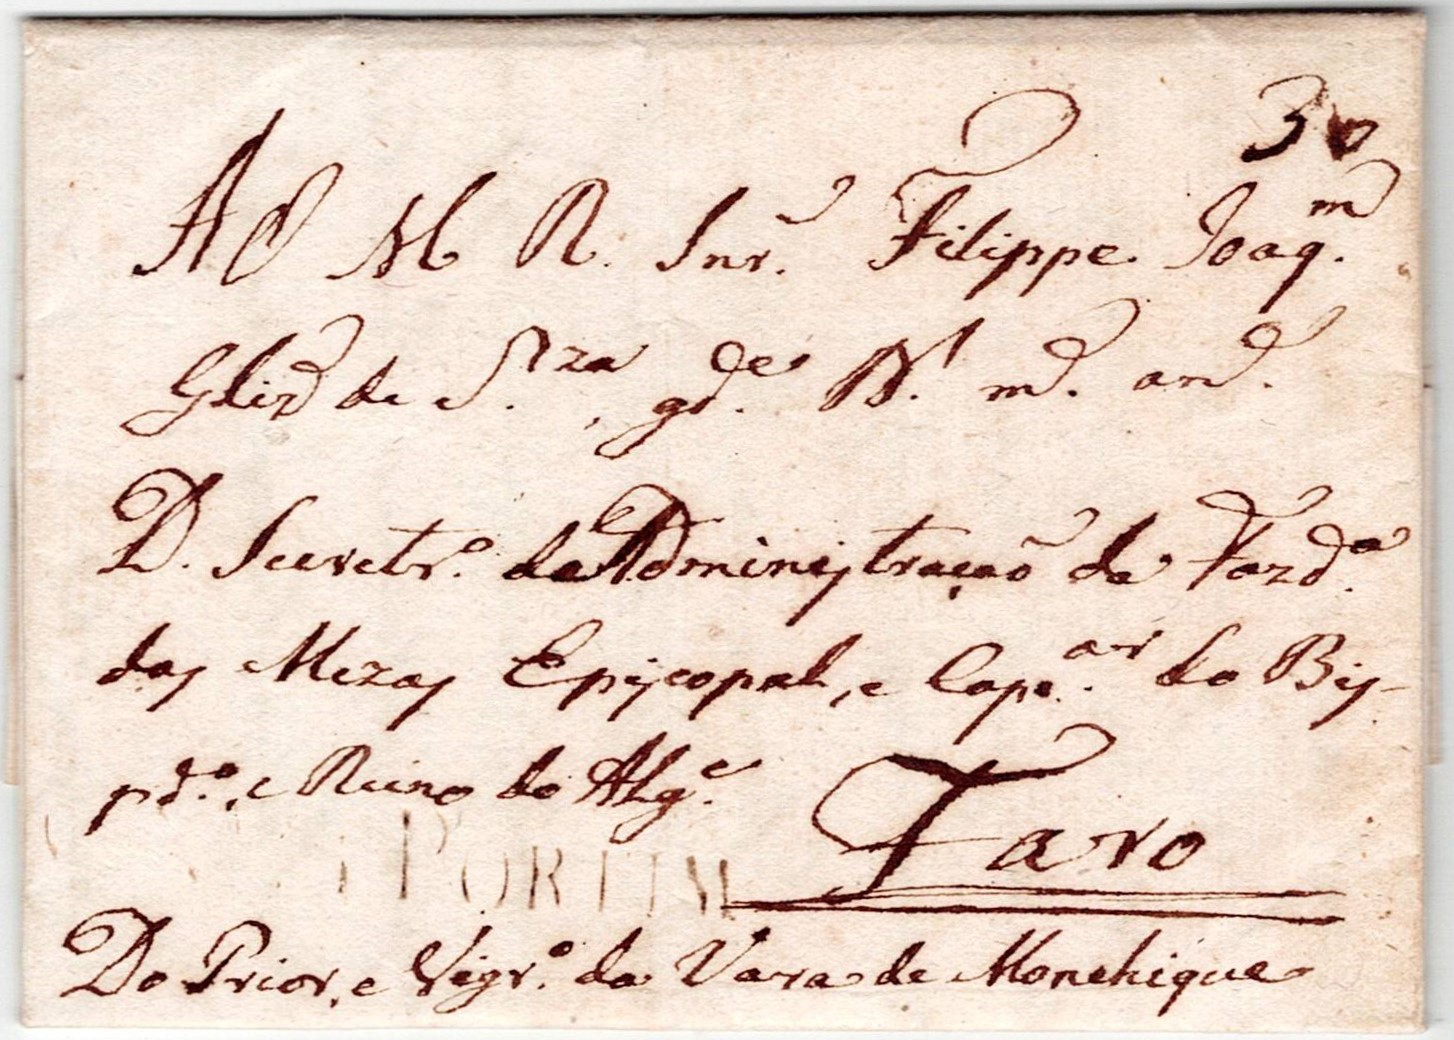 30
Ao M R. Snr. Filippe Joaq.m
de Sza gde. Ds. ms. ans.
D. Secretr.o da Administração da Fazd.a
das Mezas Episcopal, e Cape.ar do Bis-
pd.o, e Reino do Alg.e
Faro
PORTIM
Do Prior, e Vigr.o da Vara de Monchique